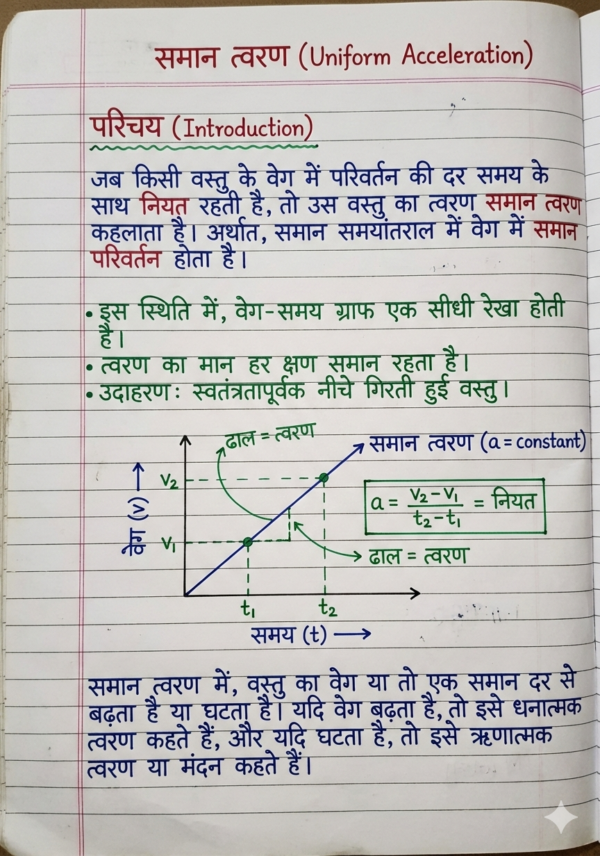 समान त्वरण (Uniform Acceleration)
परिचय (Introduction)
जब किसी वस्तु के वेग में परिवर्तन की दर समय के
साथ नियत रहती है, तो उस वस्तु का त्वरण समान त्वरण
कहलाता है। अर्थात, समान समयांतराल में वेग में समान
परिवर्तन होता है।
• इस स्थिति में, वेग-समय ग्राफ एक सीधी रेखा होती
है।
• त्वरण का मान हर क्षण समान रहता है।
• उदाहरण: स्वतंत्रतापूर्वक नीचे गिरती हुई वस्तु।
ढाल = त्वरण
समान त्वरण (a = constant)
V₂
a = (V₂ - V₁) / (t₂ - t₁) = नियत
वेग (v) →
V₁
ढाल = त्वरण
t₁ t₂
समय (t) →
समान त्वरण में, वस्तु का वेग या तो एक समान दर से
बढ़ता है या घटता है। यदि वेग बढ़ता है, तो इसे धनात्मक
त्वरण कहते हैं, और यदि घटता है, तो इसे ऋणात्मक
त्वरण या मंदन कहते हैं।